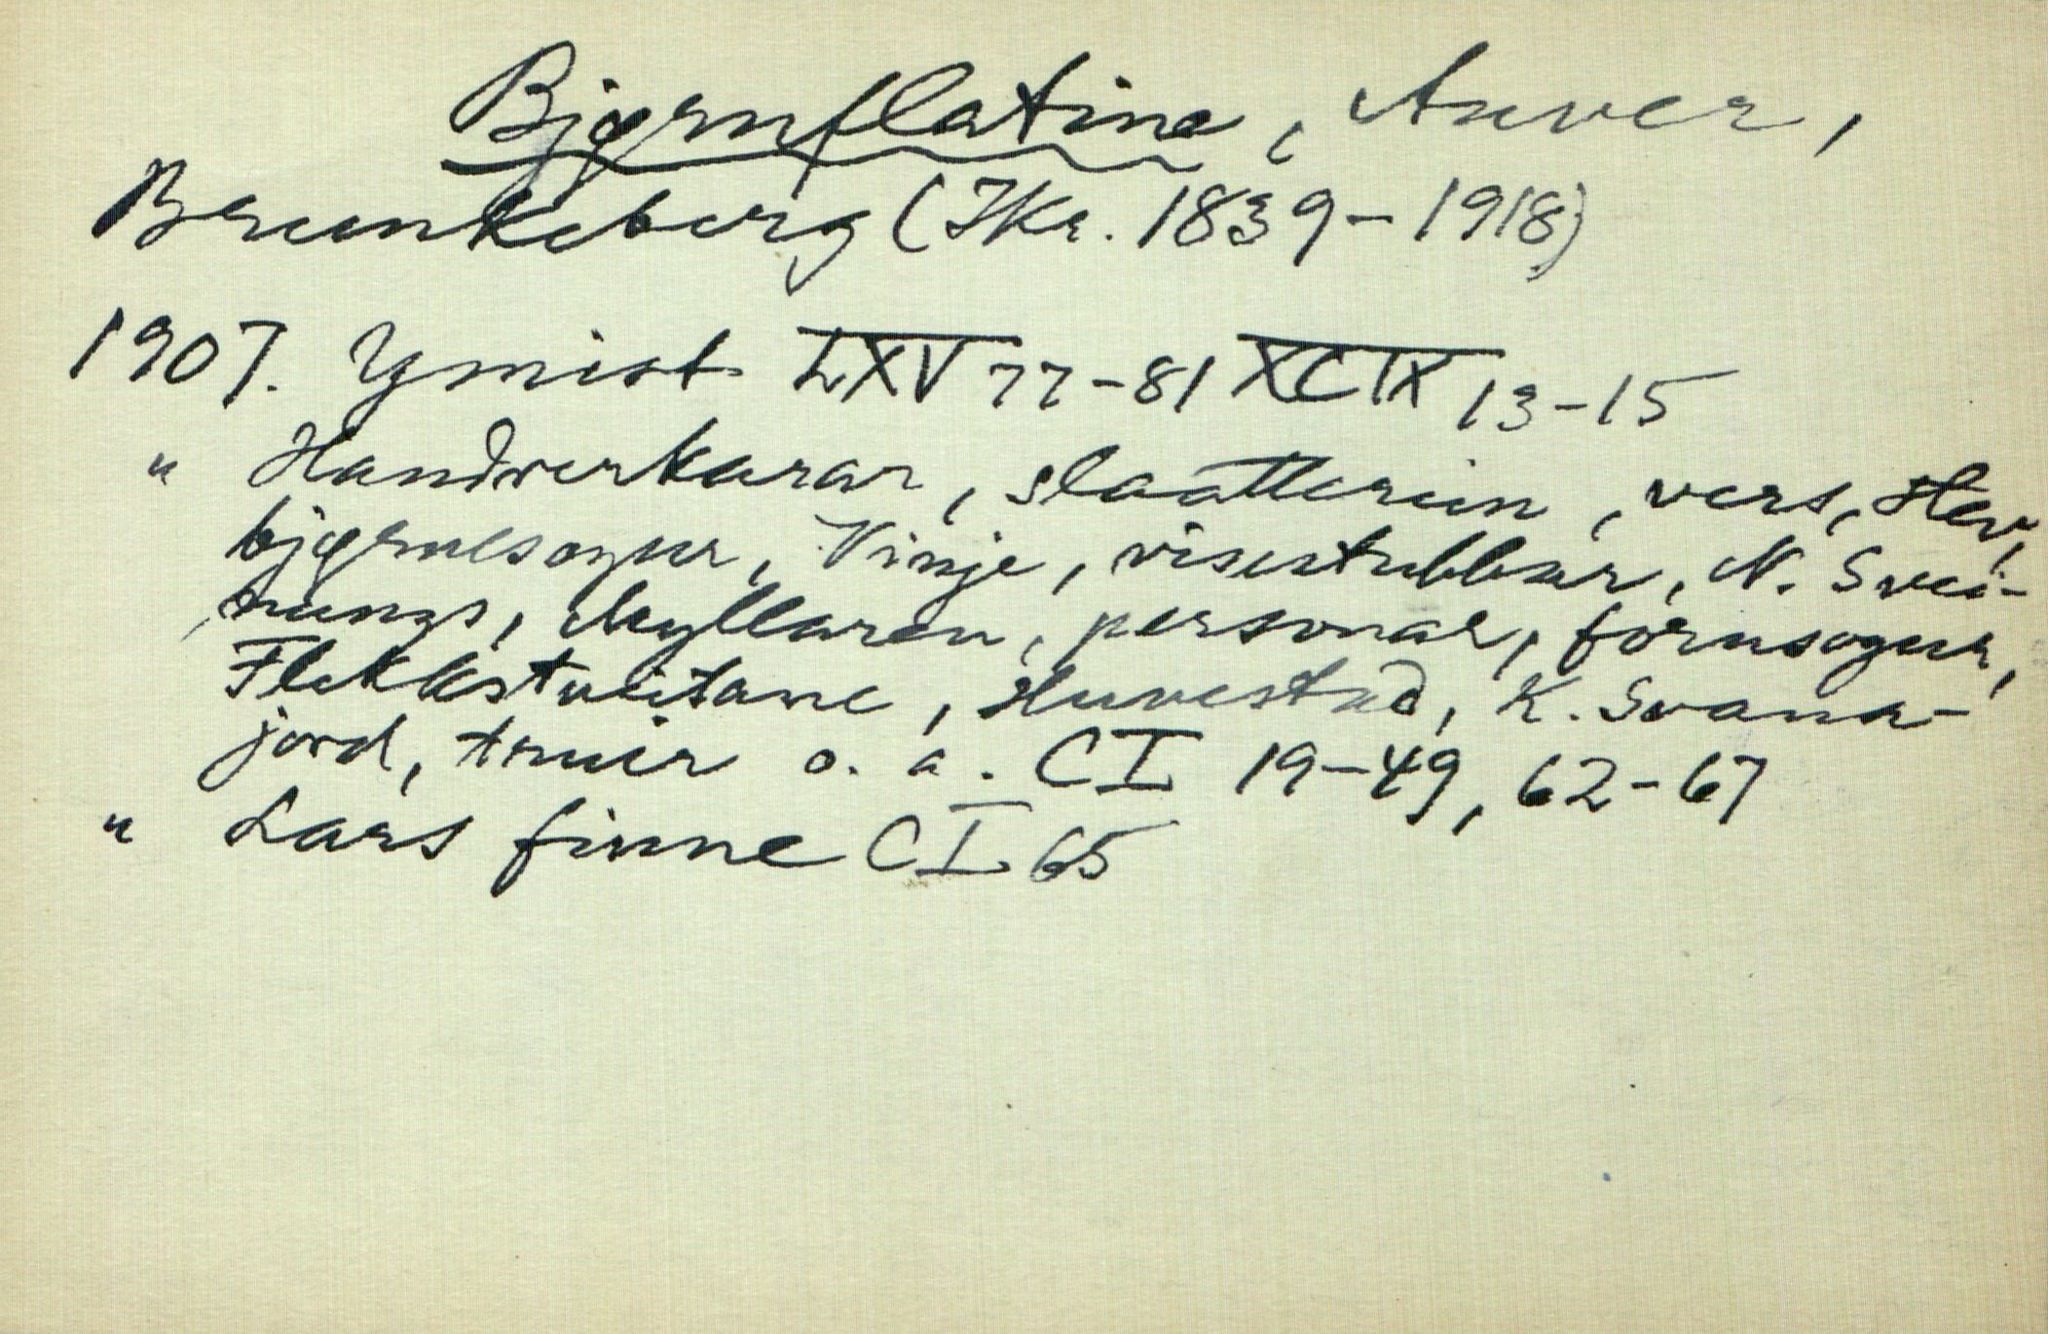 Bjørnflatine, Anver,
Brunkeberg (Ikr. 1839-1918)
1907. Ymist LXV 77-81 XCIX 13-15
" Handverkarar, slaatterim, vers, stev,
bjørnesogur, Vinje, visestubbar, N. Svei-
nungs, Myllaren, personar, fornsogur,
Flekkstveitane, Huvestad, K. Svana-
jord, truir o. a. CI 19-49, 62-67
" Lars finne CI 65